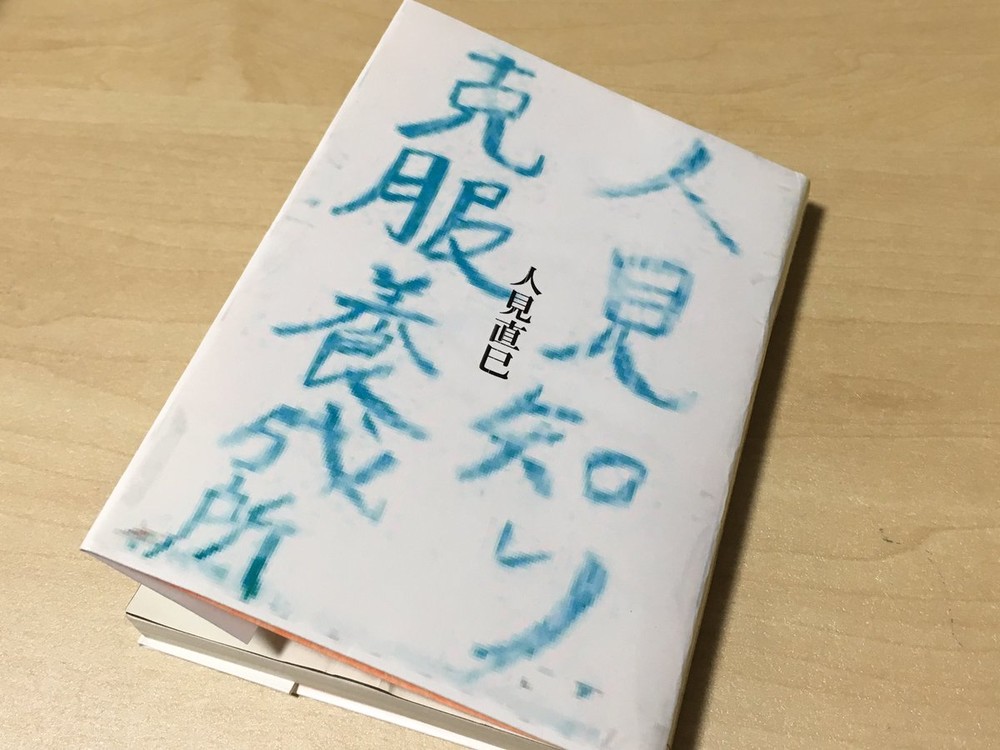 人見知り
克服養成所
人見直巳